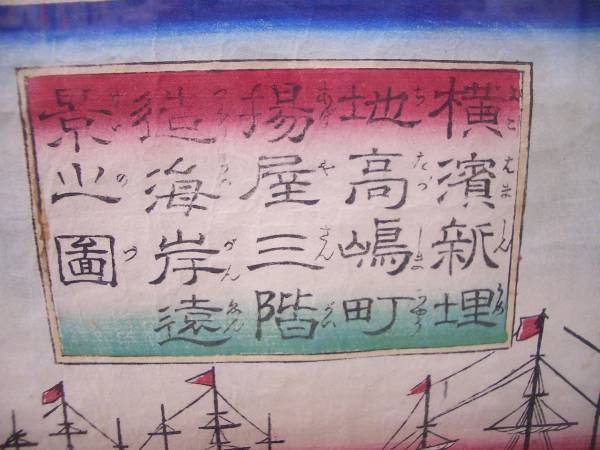 横濱新埋
地高嶋町
揚屋三階
造海岸遠
景之圖